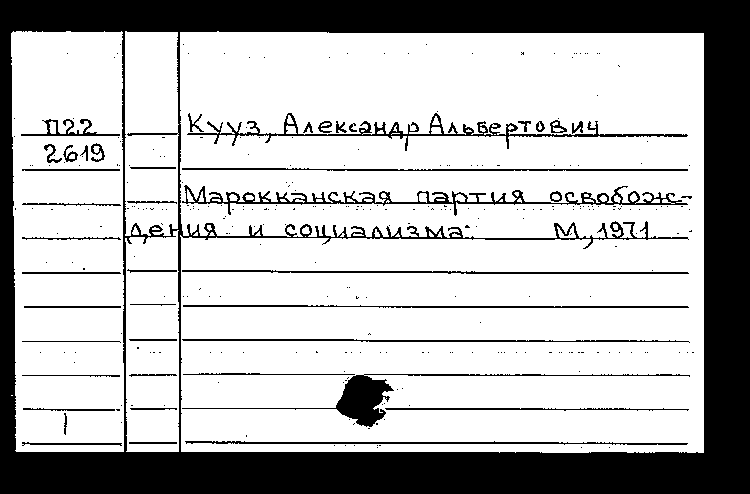 П2.2
2619
Кууз, Александр Альбертович
Марокканская партия освобож-
дения и социализма: М., 1971